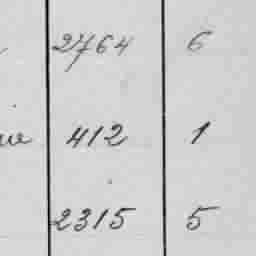 2764 6
412 1
2315 5